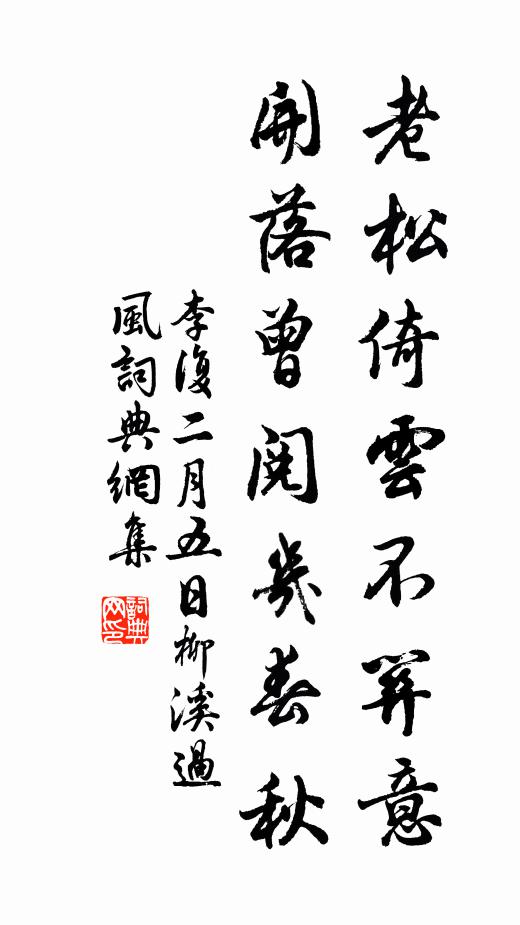 老松倚雲不筭意
開落曾閱幾春秋
李復二月五日柳溪過
風詞典網集
詞典
网印